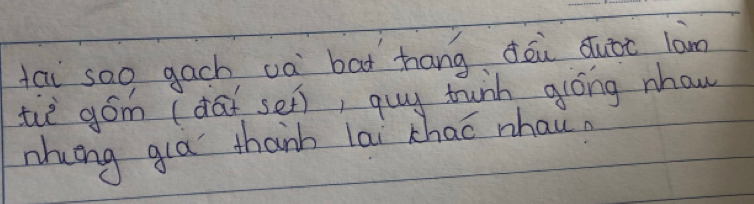 tại sao gạch và bát tràng đều được làm
từ gốm (đất sét), quy trình giống nhau
nhưng giá thành lại khác nhau.